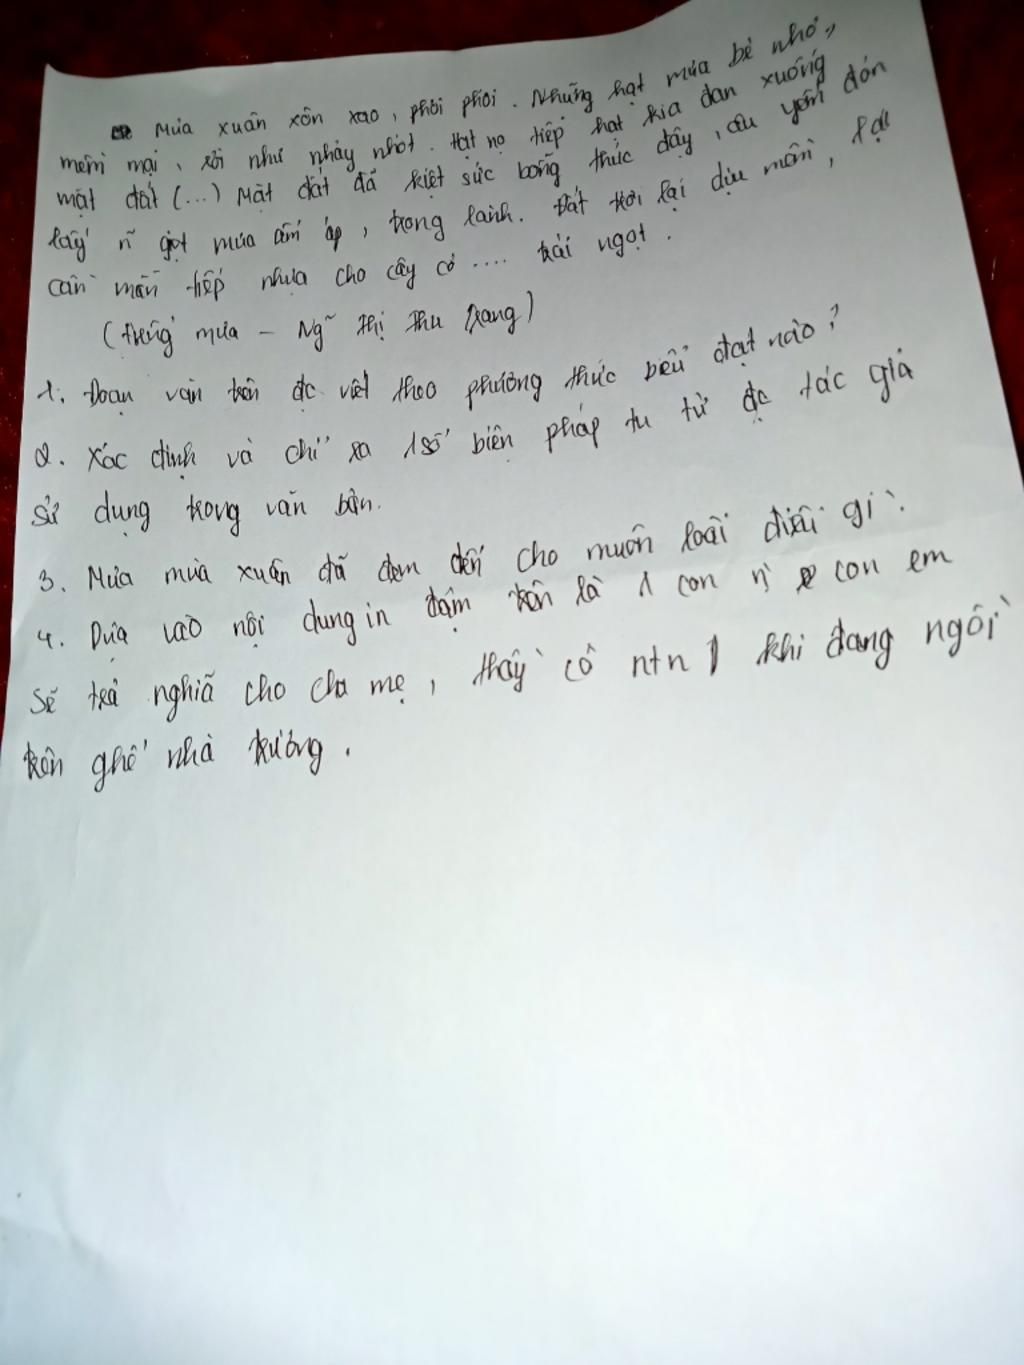 Mưa xuân xôn xao, phơi phới. Những hạt mưa bé nhỏ,
mềm mại, rơi như nhảy nhót. Hạt nọ tiếp hạt kia đan xuống
mặt đất (...) Mặt đất đã kiệt sức bỗng thức dậy, âu yếm đón
lấy n~ giọt mưa ấm áp, trong lành. Đất trời lại dịu mềm, lại
cần mẫn tiếp nhựa cho cây cỏ .... trái ngọt.
(tiếng mưa - Ng~ Thị Thu Trang)
1. Đoạn văn trên đc viết theo phương thức biểu đạt nào?
2. Xác định và chỉ ra 1 số biện pháp tu từ đc tác giả
sử dụng trong văn bản.
3. Mưa mùa xuân đã đem đến cho muôn loài điều gì.
4. Dựa vào nội dung in đậm trên là 1 con con em
sẽ trả nghĩa cho cha mẹ, thầy cô ntn khi đang ngồi
trên ghế nhà trường.